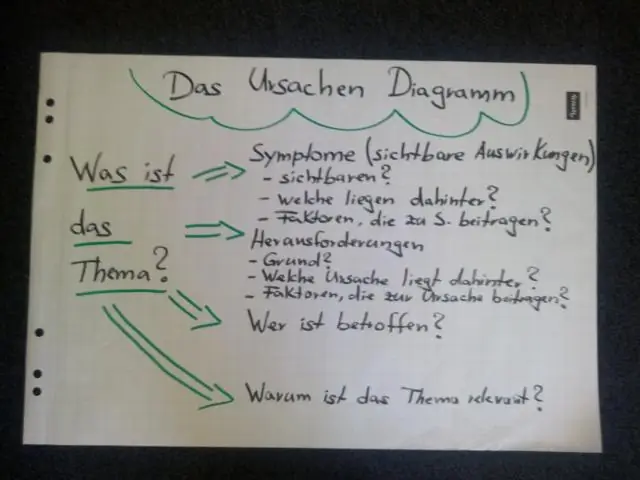 Das Ursachen Diagramm
Was ist
das
Thema?
Symptome (sichtbare Auswirkungen)
- sichtbaren?
- welche liegen dahinter?
- Faktoren, die zu S. beitragen?
Herausforderungen
- Grund?
- Welche Ursache liegt dahinter?
- Faktoren, die zur Ursache beitragen?
Wer ist betroffen?
Warum ist das Thema relevant?